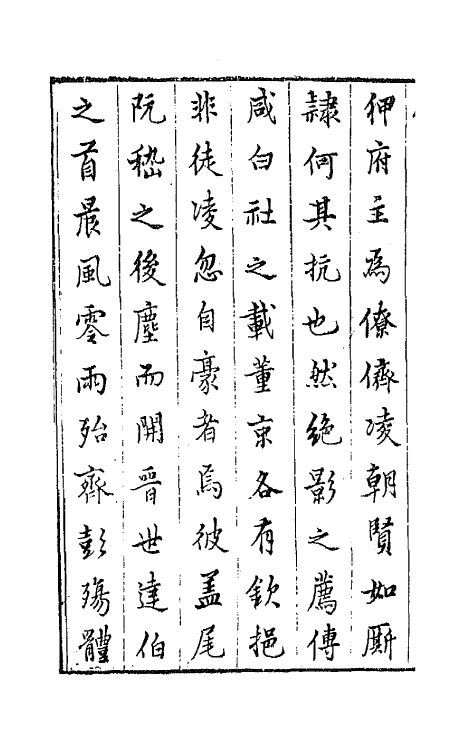 狎府主爲僚儕凌朝賢如厮
隷何其抗也然絶影之薦傅
咸白社之載董京各有欽挹
非徒凌忽自豪者焉彼盖尾
阮嵇之後塵而開晉世達伯
之首晨風零雨殆齊彭殤體